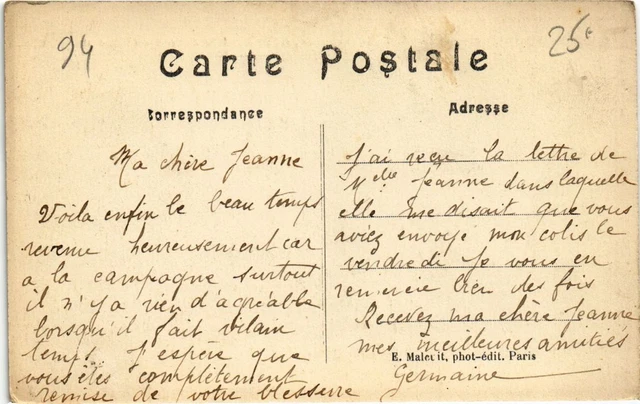 94
25c
Carte Postale
Correspondance
Adresse
Ma chère Jeanne
Voila enfin le beau temps
revenu heureusement car
a la campagne surtout
il n'y a rien d'agréable
lorsqu'il fait vilain
temps. J'espère que
vous êtes complètement
remise de votre blessure
J'ai reçu la lettre de
Melle Jeanne dans laquelle
elle me disait que vous
aviez envoyé mon colis le
vendredi Je vous en
remercie bien des fois
Recevez ma chère Jeanne
mes meilleures amitiés
E. Malcuit, phot-édit. Paris
Germaine